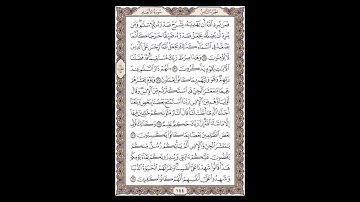 سورة الأنعام الجزء الثامن
فَمَن يُرِدِ ٱللَّهُ أَن يَهْدِيَهُۥ يَشْرَحْ صَدْرَهُۥ لِلْإِسْلَٰمِ ۖ وَمَن
يُرِدْ أَن يُضِلَّهُۥ يَجْعَلْ صَدْرَهُۥ ضَيِّقًا حَرَجًا كَأَنَّمَا
يَصَّعَّدُ فِى ٱلسَّمَآءِ ۚ كَذَٰلِكَ يَجْعَلُ ٱللَّهُ ٱلرِّجْسَ عَلَى ٱلَّذِينَ
لَا يُؤْمِنُونَ ١٢٥ وَهَٰذَا صِرَٰطُ رَبِّكَ مُسْتَقِيمًا ۗ قَدْ فَصَّلْنَا
ٱلْءَايَٰتِ لِقَوْمٍ يَذَّكَّرُونَ ١٢٦ ۞ لَهُمْ دَارُ ٱلسَّلَٰمِ عِندَ
رَبِّهِمْ ۖ وَهُوَ وَلِيُّهُم بِمَا كَانُوا۟ يَعْمَلُونَ ١٢٧ وَيَوْمَ يَحْشُرُهُمْ
جَمِيعًا يَٰمَعْشَرَ ٱلْجِنِّ قَدِ ٱسْتَكْثَرْتُم مِّنَ ٱلْإِنسِ ۖ وَقَالَ
أَوْلِيَآؤُهُم مِّنَ ٱلْإِنسِ رَبَّنَا ٱسْتَمْتَعَ بَعْضُنَا بِبَعْضٍ وَبَلَغْنَآ
أَجَلَنَا ٱلَّذِىٓ أَجَّلْتَ لَنَا ۚ قَالَ ٱلنَّارُ مَثْوَىٰكُمْ خَٰلِدِينَ فِيهَآ
إِلَّا مَا شَآءَ ٱللَّهُ ۗ إِنَّ رَبَّكَ حَكِيمٌ عَلِيمٌ ١٢٨ وَكَذَٰلِكَ نُوَلِّى
بَعْضَ ٱلظَّٰلِمِينَ بَعْضًۢا بِمَا كَانُوا۟ يَكْسِبُونَ ١٢٩
يَٰمَعْشَرَ ٱلْجِنِّ وَٱلْإِنسِ أَلَمْ يَأْتِكُمْ رُسُلٌ مِّنكُمْ
يَقُصُّونَ عَلَيْكُمْ ءَايَٰتِى وَيُنذِرُونَكُمْ لِقَآءَ يَوْمِكُمْ
هَٰذَا ۚ قَالُوا۟ شَهِدْنَا عَلَىٰٓ أَنفُسِنَا ۖ وَغَرَّتْهُمُ ٱلْحَيَوٰةُ ٱلدُّنْيَا
وَشَهِدُوا۟ عَلَىٰٓ أَنفُسِهِمْ أَنَّهُمْ كَانُوا۟ كَٰفِرِينَ ١٣٠
١٤٤